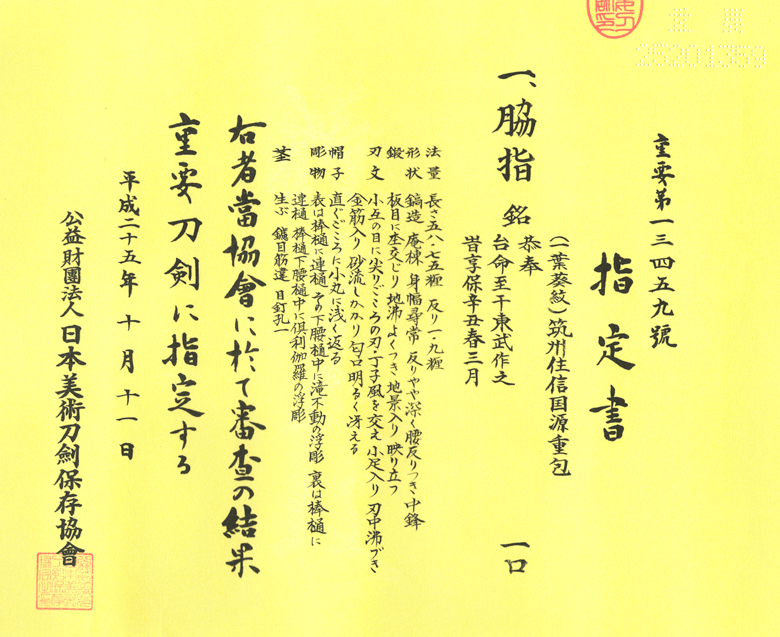 重要第一三四五九號
指定書
一、脇指 銘 (一葉葵紋)筑州住信国源重包 一口
恭奉
台命至于東武作之
旹享保辛丑春三月
法量 長さ五八・七五糎 反り一・九糎
形状 鎬造 庵棟 身幅尋常 反りやや深く腰反りつき中鋒
鍛 板目に杢交じり 地沸よくつき地景入り 映り立つ
刃文 小互の目に尖りごころの刃・丁子風を交え 小足入り 刃中沸づき
金筋入り 砂流しかかり 匂口明るく冴える
帽子 直ぐごころに小丸に浅く返る
彫物 表は棒樋に連樋 その下腰樋中に滝不動の浮彫 裏は棒樋に
連樋 棒樋下腰樋中に倶利伽羅の浮彫
茎 生ぶ 鑢目筋違 目釘孔一
右者當協會に於て審査の結果
重要刀剣に指定する
平成二十五年十月十一日
公益財團法人日本美術刀劍保存協會
25201359